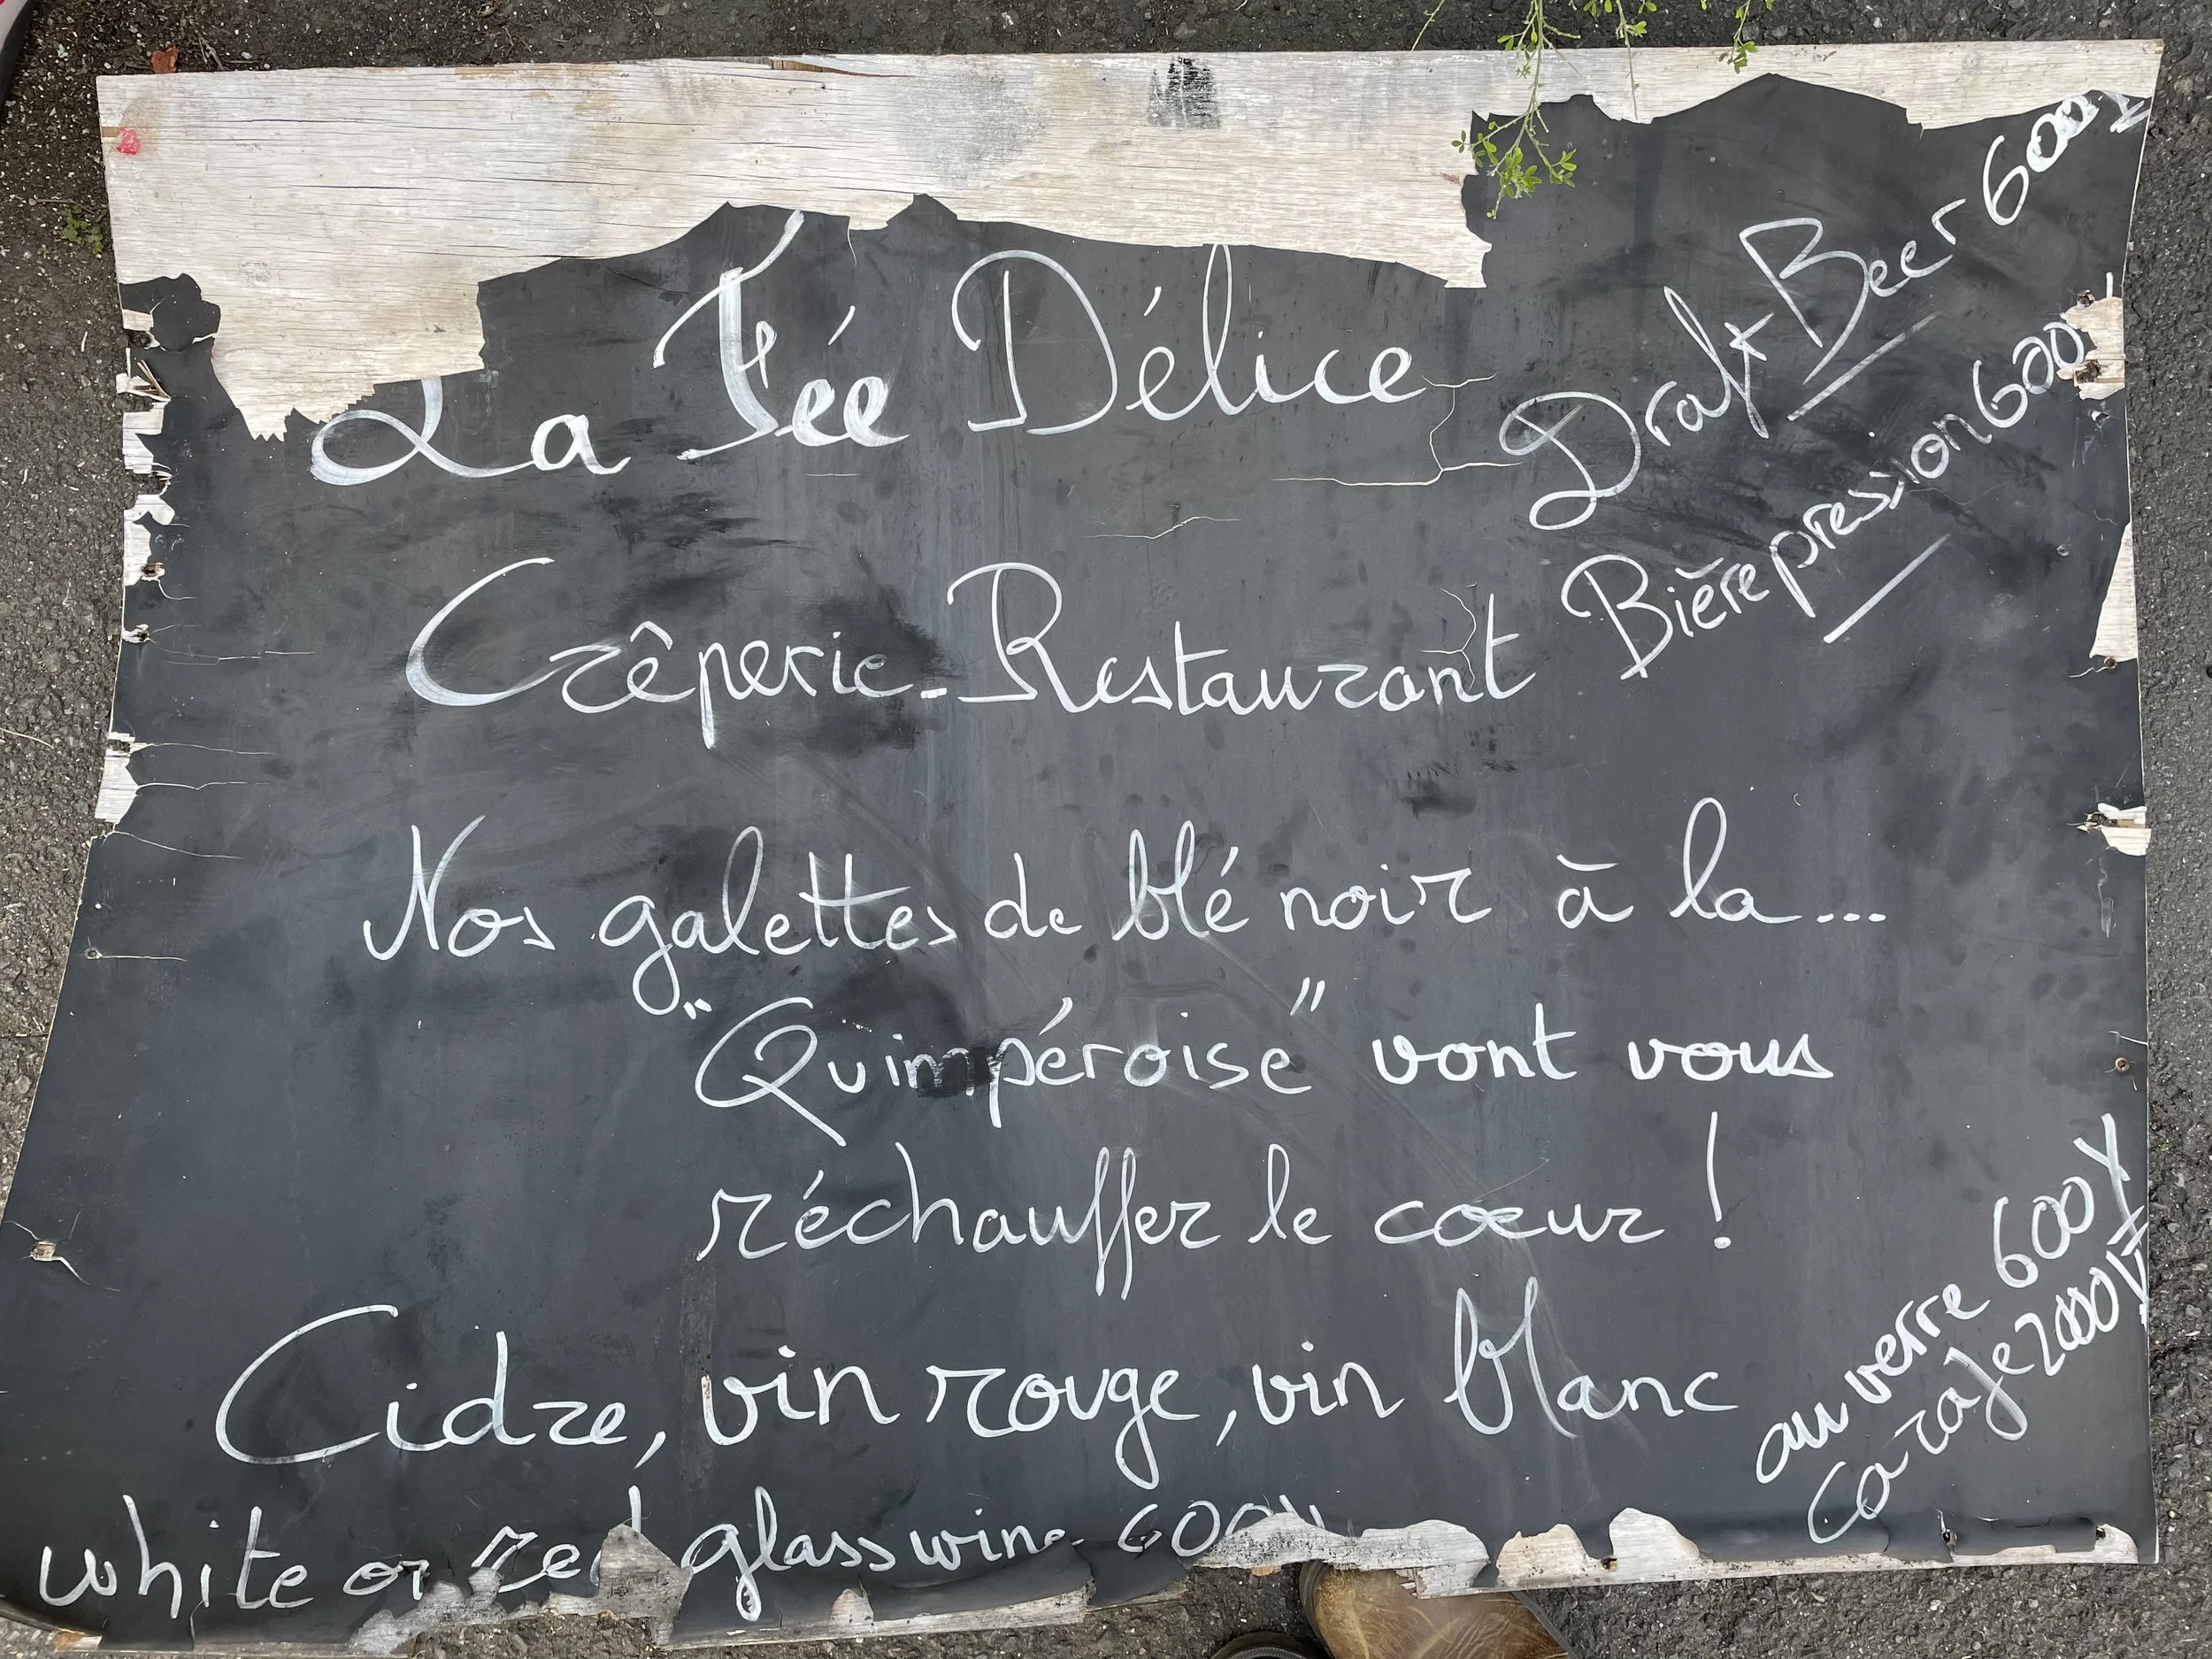 La Fée Délice
Draft Beer 600¥
Bière pression 600
Crêperie-Restaurant
Nos galettes de blé noir à la...
"Quimpéroise" vont vous
réchauffer le coeur !
Cidre, vin rouge, vin blanc
au verre 600¥
carafe 2000¥
white or red glass wine 600¥